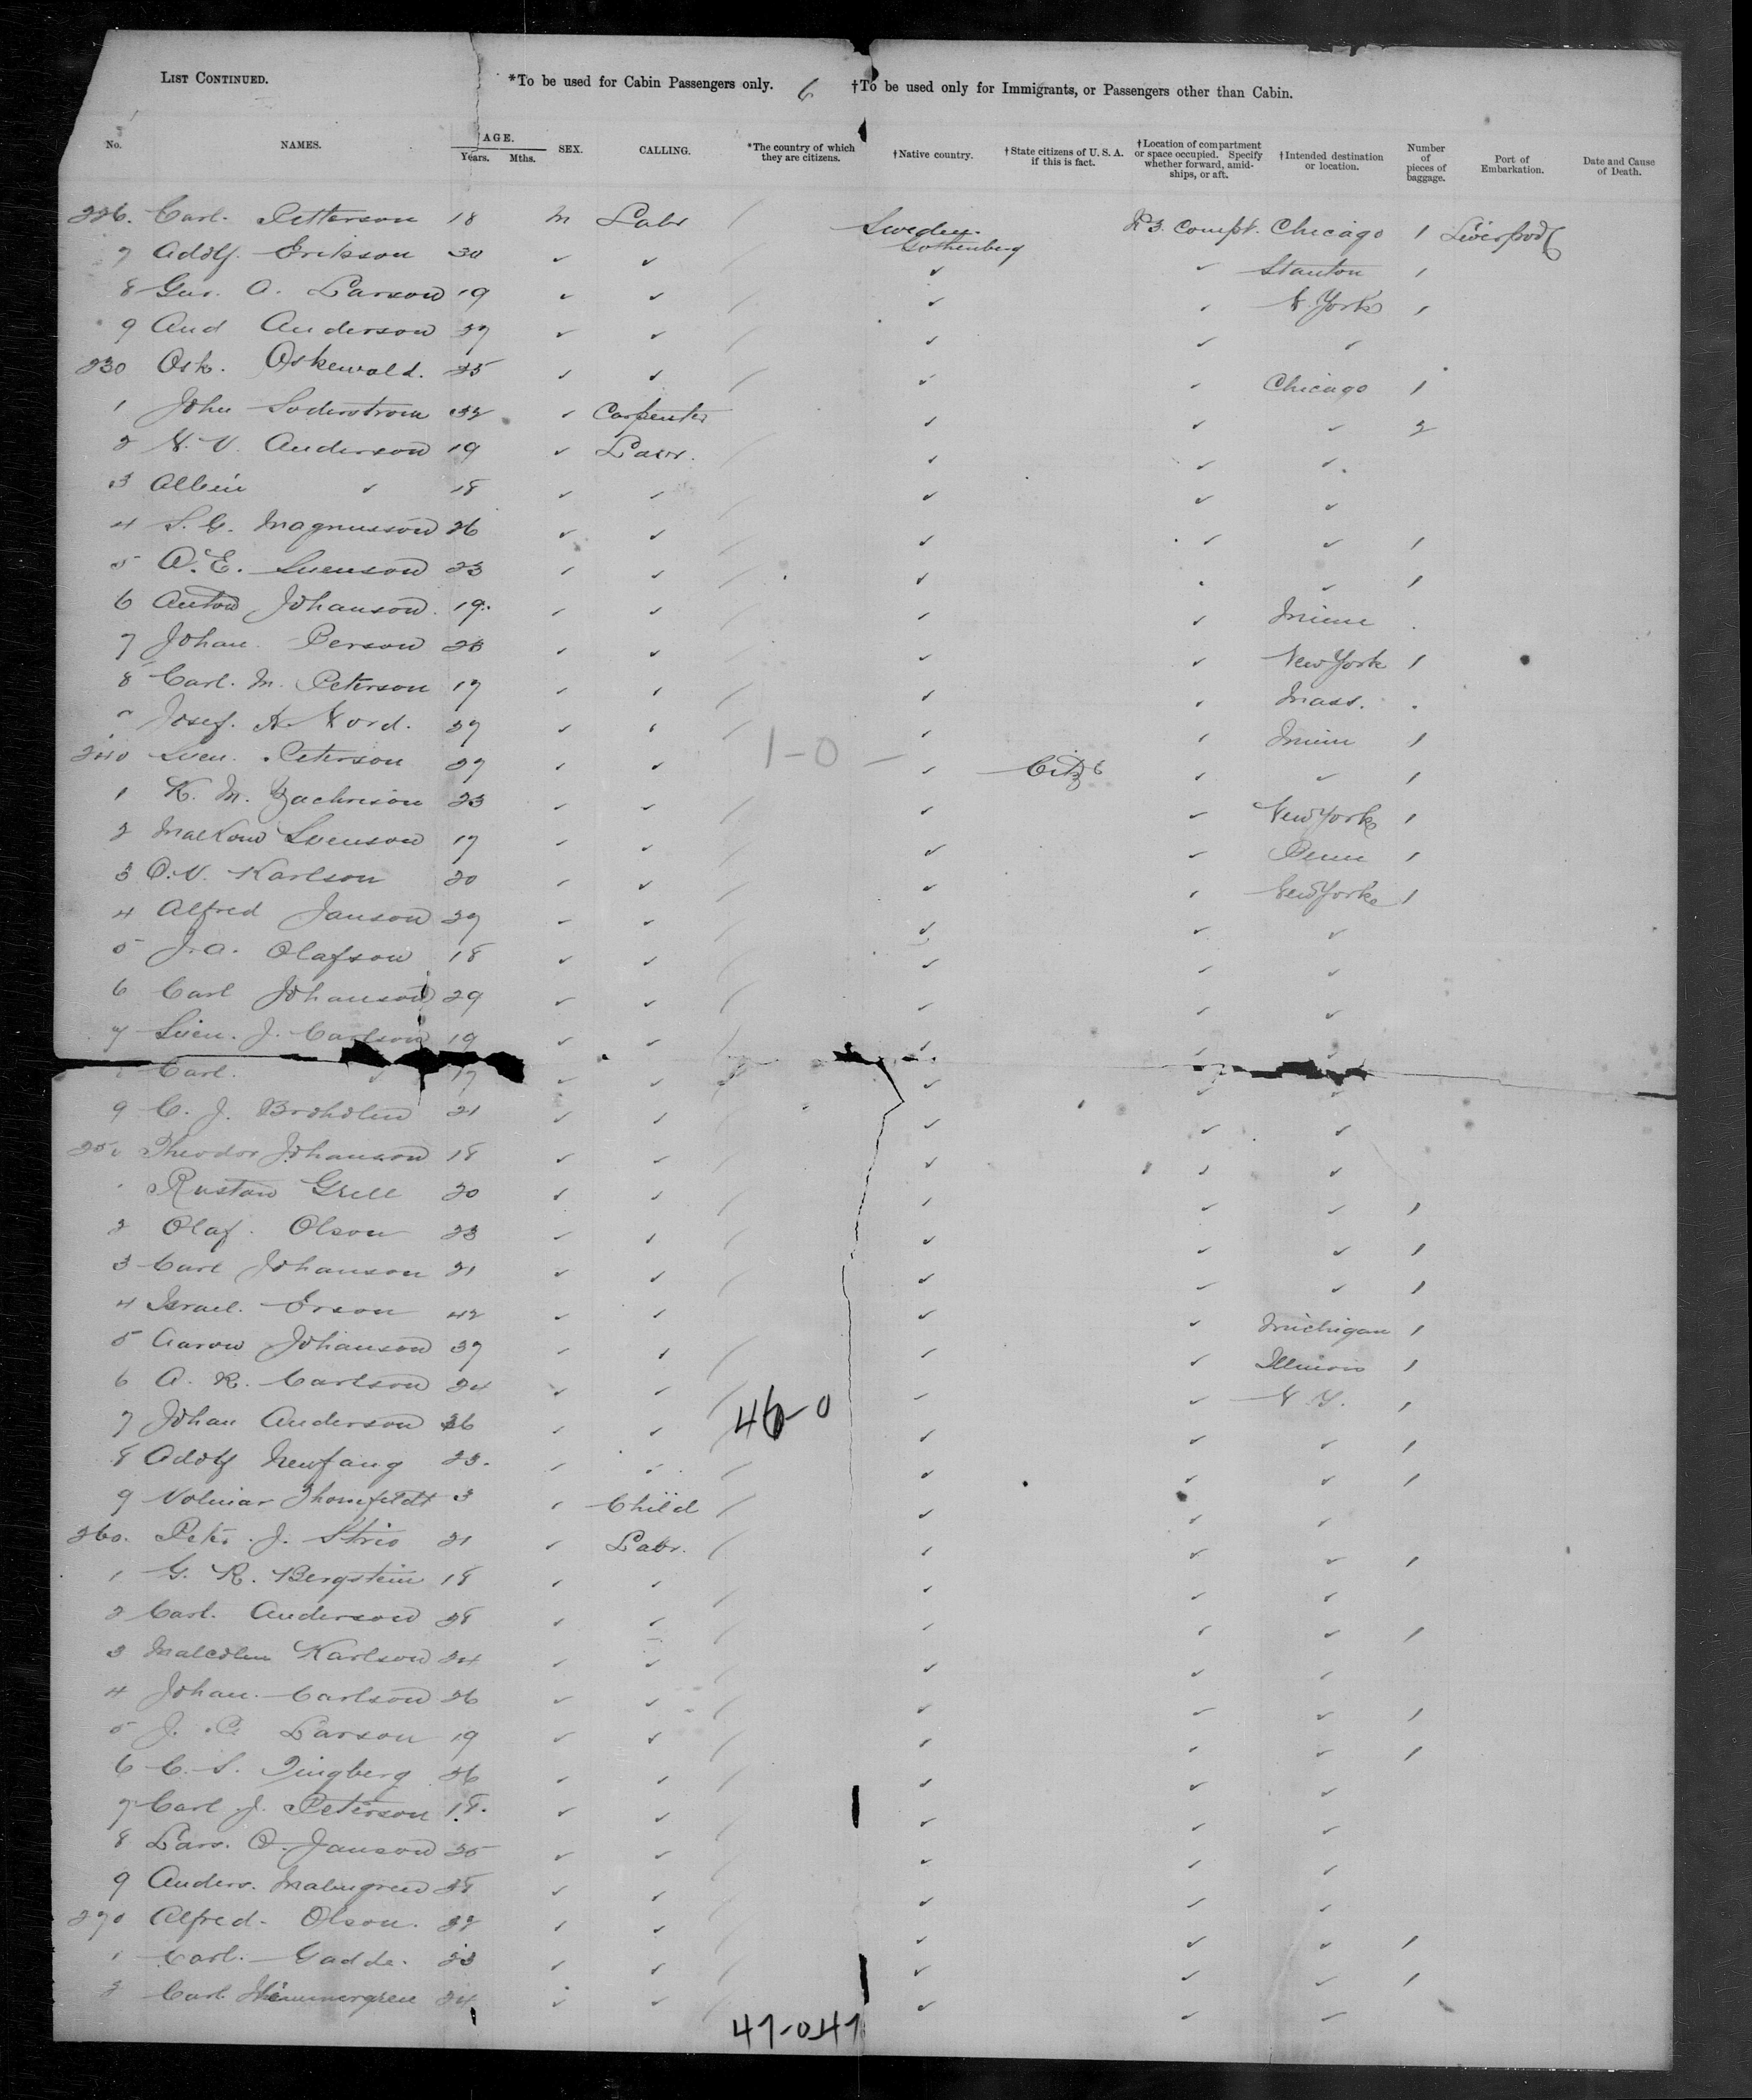 LIST CONTINUED. *To be used for Cabin Passengers only. 6 †To be used only for Immigrants, or Passengers other than Cabin.
No. NAMES. AGE. Years. Mths. SEX. CALLING. *The country of which they are citizens. †Native country. †State citizens of U. S. A. if this is fact. †Location of compartment or space occupied. Specify whether forward, amidships, or aft. †Intended destination or location. Number of pieces of baggage. Port of Embarkation. Date and Cause of Death.
226. Carl. Petterson 18 M Labr / Sweden. Gothenberg Compt. Chicago 1 Liverpool
7 Adolf. Erikson 30 ✓ ✓ ✓ ✓ Stanton 1
8 Gus. A. Larson 19 ✓ ✓ / ✓ ✓ N. York 1
9 And Anderson 37 ✓ ✓ / ✓ ✓ ✓
230 Osk. Oskewald. 25 ✓ ✓ / ✓ ✓ Chicago 1
1 John Soderstrom 32 ✓ Carpenter ✓ ✓ ✓ 2
2 N. V. Anderson 19 ✓ Labr. / ✓ ✓ ✓
3 Albin ✓ 18 ✓ ✓ ✓ ✓ ✓
4 S. G. Magnusson 26 ✓ ✓ / ✓ ✓ ✓ 1
5 A. E. Svenson 23 ✓ ✓ / ✓ ✓ 1
6 Anton Johanson. 19. ✓ ✓ / ✓ ✓ Minn
7 Johan. Person ✓ ✓ / ✓ ✓ New York 1
8 Carl. M. Peterson 17 ✓ ✓ / ✓ ✓ Mass.
Josef. A. Nord. 37 ✓ ✓ / ✓ ✓ Minn 1
240 Sven. Peterson 27 ✓ ✓ 1-0 - ✓ Citz ✓ ✓ 1
1 K. M. Zachrison 23 ✓ ✓ / ✓ ✓ New York 1
2 Malkom Svenson 17 ✓ ✓ / ✓ ✓ Penn 1
3 O. V. Karlson 20 ✓ ✓ / ✓ ✓ New York 1
4 Alfred Janson 27 ✓ ✓ / ✓ ✓ ✓
5 J. A. Olafson 18 ✓ ✓ / ✓ ✓ ✓
6 Carl Johanson 29 ✓ ✓ / ✓ ✓ ✓
7 Sven. J. Carlson 19 ✓ ✓ / ✓ ✓ ✓
Carl. ✓ 17 ✓ ✓ ✓ ✓ ✓
9 C. J. Broholm 21 ✓ ✓ / ✓ ✓ ✓
250 Theodor Johanson 18 ✓ ✓ / ✓ ✓ ✓
Rustan Grell 20 ✓ ✓ / ✓ ✓ ✓ 1
2 Olaf. Olson 23 ✓ ✓ / ✓ ✓ ✓ 1
3 Carl Johanson 21 ✓ ✓ / ✓ ✓ ✓ 1
4 Israel. Erson 42 ✓ ✓ ✓ ✓ Michigan 1
5 Aaron Johanson 37 ✓ ✓ / ✓ ✓ Illinois 1
6 A. R. Carlson 24 ✓ ✓ / 46-0 ✓ ✓ N. Y. 1
7 Johan Anderson ✓ ✓ / ✓ ✓ ✓ 1
8 Adolf Newfang 23. ✓ ✓ / ✓ ✓ ✓ 1
9 Volmar Thomfeldt 3 ✓ Child / ✓ ✓ ✓
260. J. Strio 21 ✓ Labr. / ✓ ✓ ✓ 1
1 G. R. Bergstein 18 ✓ ✓ / ✓ ✓ ✓
2 Carl. Anderson 28 ✓ ✓ / ✓ ✓ ✓ 1
3 Malcolm Karlson 24 ✓ ✓ / ✓ ✓ ✓
4 Johan. Carlson 26 ✓ ✓ / ✓ ✓ ✓ 1
5 J. P. Larson 19 ✓ ✓ / ✓ ✓ ✓ 1
6 C. S. 26 ✓ ✓ / ✓ ✓ ✓
7 Carl J. Peterson 18. ✓ ✓ / ✓ ✓ ✓
8 Lars. O. Janson 25 ✓ ✓ / ✓ ✓ ✓
9 Anders. Malmgren ✓ ✓ / ✓ ✓ ✓
270 Alfred. Olson. 32 ✓ ✓ / ✓ ✓ ✓ 1
1 Carl. Gadde. 23 ✓ ✓ / ✓ ✓ ✓ 1
2 Carl. 24 ✓ ✓ / ✓ ✓ ✓
47-0-47